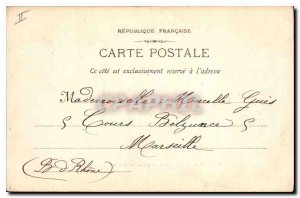 II
RÉPUBLIQUE FRANÇAISE
CARTE POSTALE
Ce côté est exclusivement réservé à l'adresse
Mademoiselle Marcelle Guis
5 Cours Belzunce 5
Marseille
(B. d. Rhône)